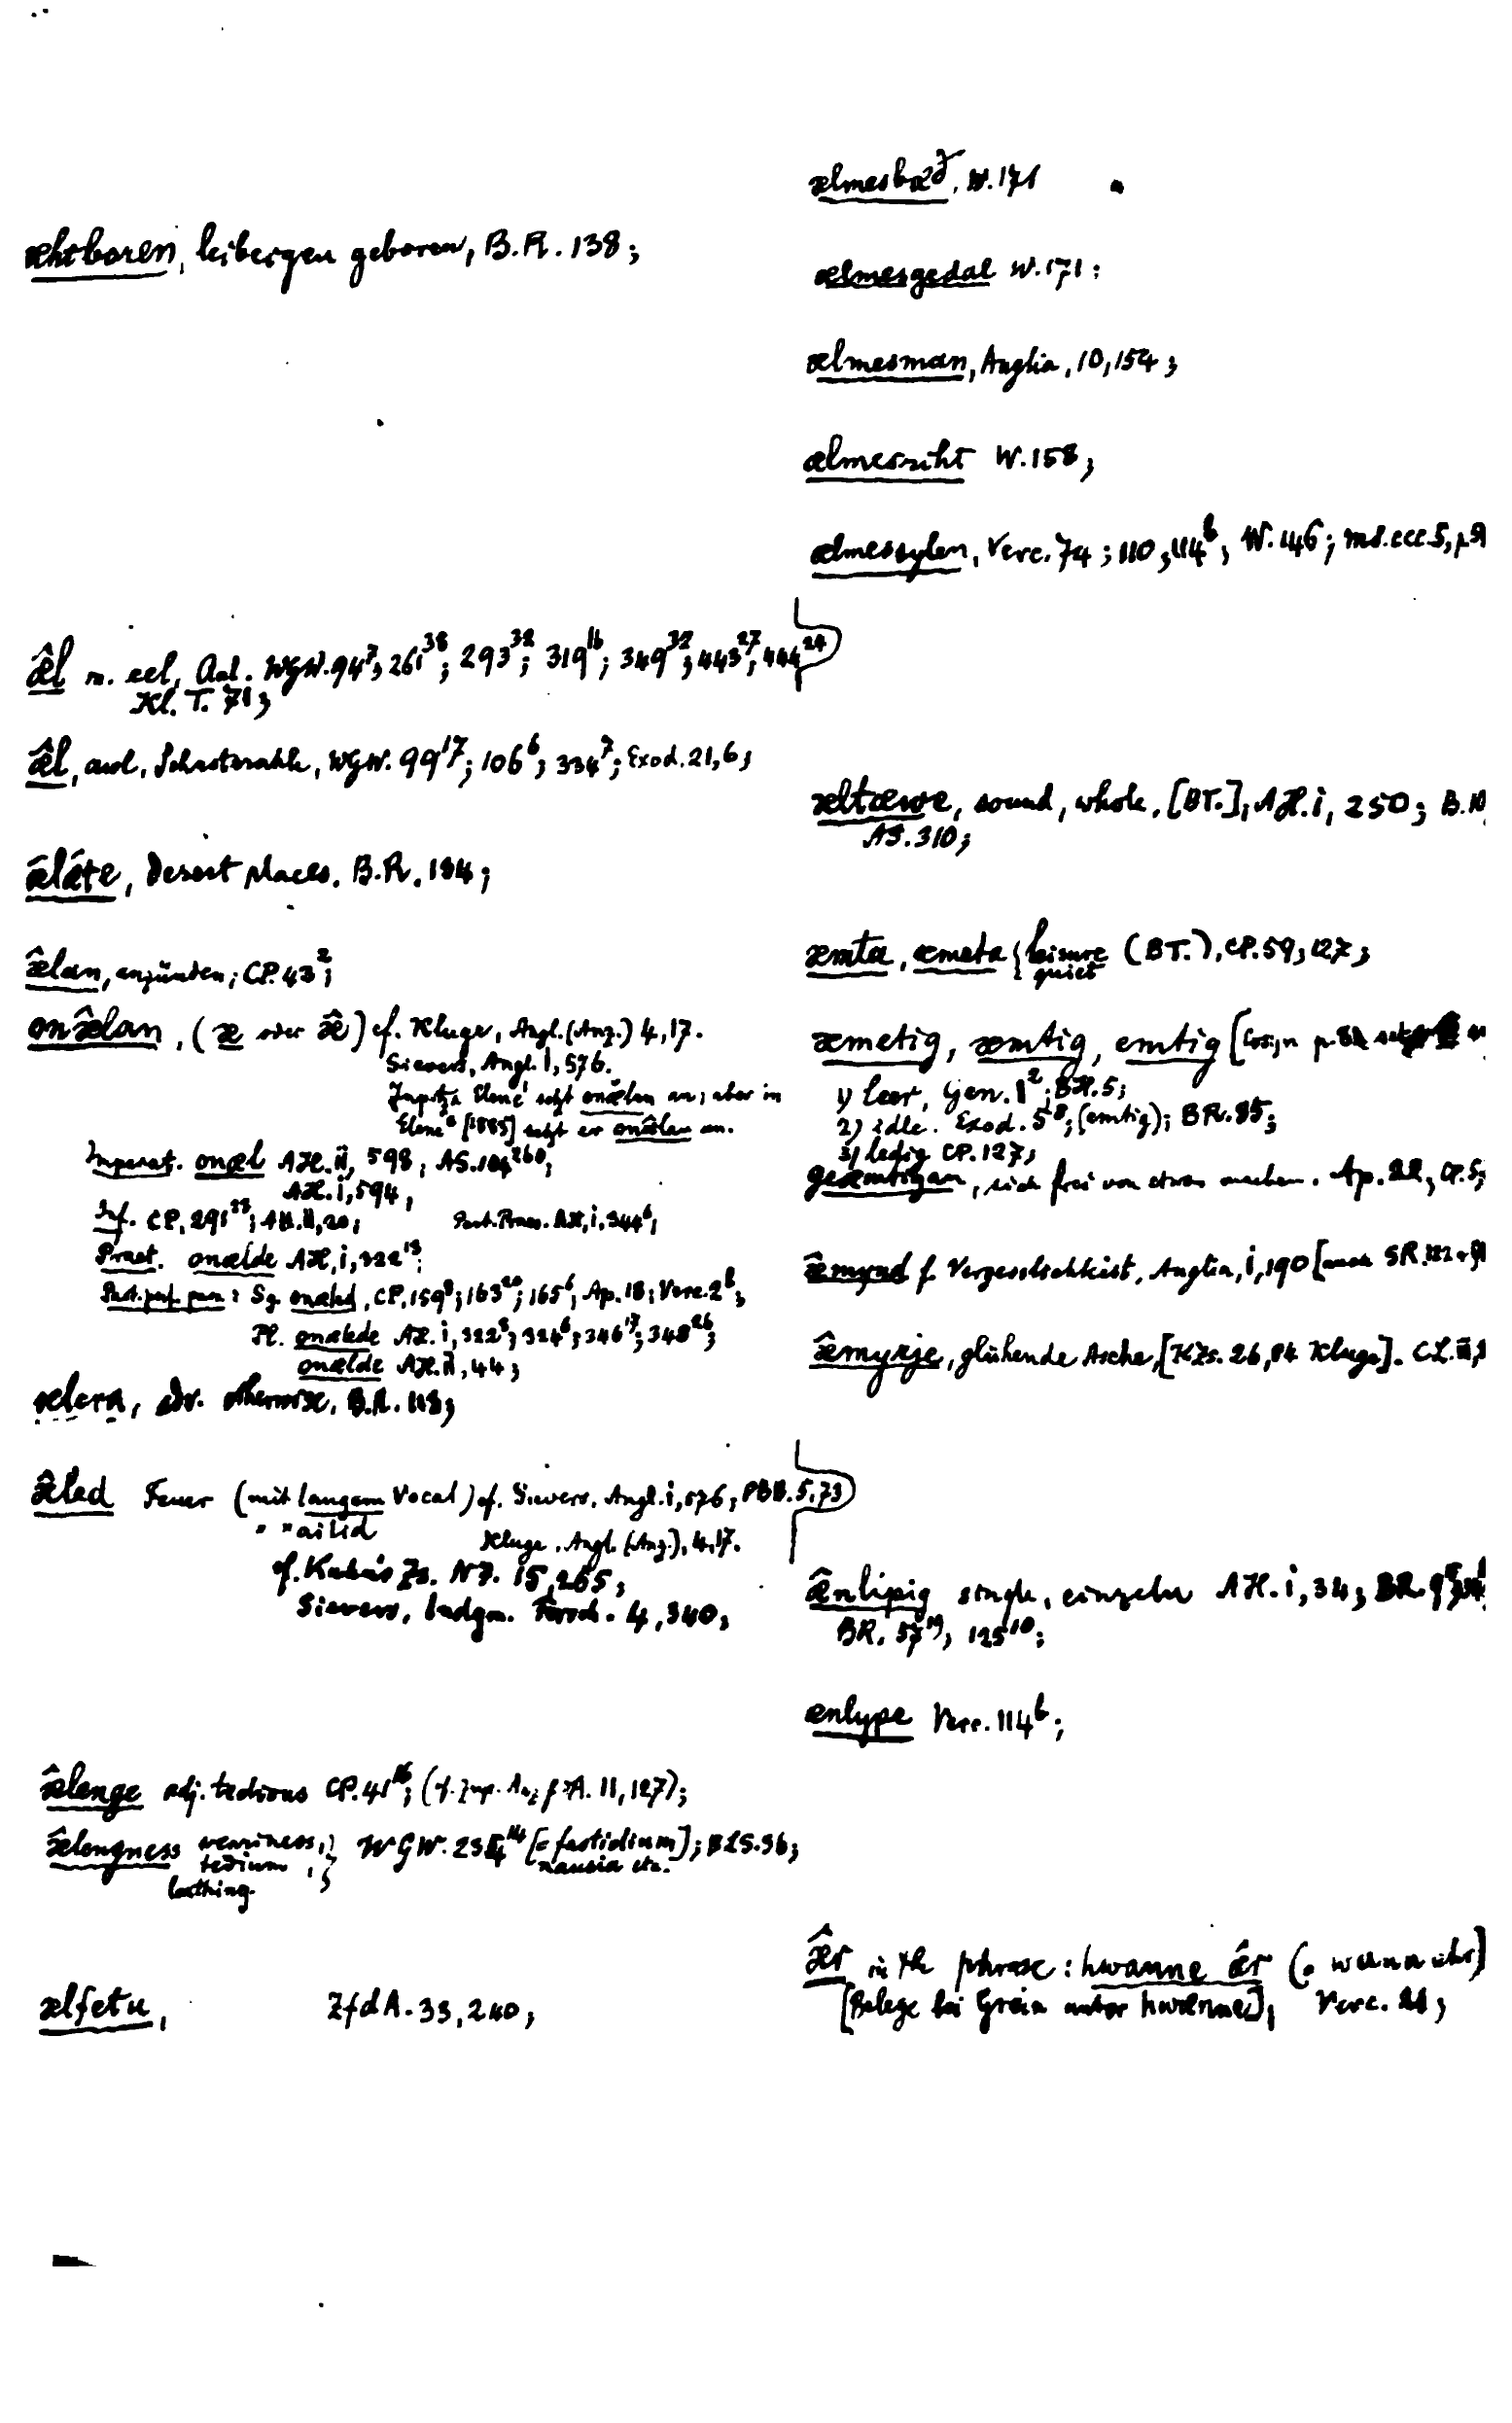 æhtboren, leibeigen geboren, B.R. 138;
ǣl m. eel, Aal. WGW. 94⁷; 261³⁸; 293³²; 319¹⁶; 349³²; 443²⁷; 444²⁴
Kl. T. 71;
ǣl, awl, WGW. 99¹⁷; 106⁶; 334⁷; Exod. 21,6;
ǣlǣte, desert places. B.R. 184;
æ̂lan, anzünden; CP. 43²;
onæ̂lan, (æ oder æ̂) cf. Kluge, Angl. (Anz.) 4,17.
Sievers, Angl. 1, 576.
Zupitza Elene¹ setzt onælan an; aber in
Elene² [1885] setzt er onæ̂lan an.
Imperat. onæl AH. ii, 598; AS. 104²⁶⁰;
AH. i, 594;
Inf. CP. 291²³; AH. ii, 20; Part. Praes. AH, i, 344⁶;
Praet. onælde AH, i, 322¹³;
Part. perf. pass: Sg. onæled, CP. 159⁸; 163²⁰; 165⁶; Ap. 18; Verc. 2ᵇ;
Pl. onælede AH. i, 322⁸; 324⁶; 346¹⁷; 348²⁶;
onælde AH. ii, 44;
ælcra, adv. otherwise, B.R. 118;
æ̂led Feuer (mit langem Vocal) cf. Sievers. Angl. i, 576; PBB. 5,73
" " ailid Kluge. Angl. (Anz.), 4,17.
cf. Kuhns Zs. NF. 15,265;
Sievers, Indgm. Forsch. 4,340;
æ̂lenge adj. tedious CP. 41¹⁶; (cf. Zup. Anz. f. A. 11, 127);
æ̂lengness weariness, WGW. [= fastidium]; 
tedium, nausia etc.
loathing.
ælfetu, ZfdA. 33,240;
ælmesbæð, W. 171
ælmesgedal W. 171;
ælmesman, Anglia, 10,154;
ælmesriht W. 158;
ælmessylen, Verc. 74; 110; 114ᵇ; W. 146; ms. ccc. 5,
æltæwe, sound, whole, [BT.]; AH. i, 250;
AS. 310;
æmta, æmeta { leisure (BT.), CP. 59; 127;
quiet
æmetig, æmtig, emtig [Cosijn
1) leer, Gen. 1²; BH. 5;
2) idle. Exod. 5⁸; (emtig); BR. 85;
3) ledig CP. 127;
geæmtigan, sich frei von etwas machen. Ap. 22;
æ̂mynd f. Vergesslichkeit, Anglia, i, 190 [
æ̂myrje, glühende Asche, [KZs. 26,84 Kluge].
æ̂nlipig single, einzeln AH. i, 34; BR.
BR. 57¹⁹; 125¹⁰;
ænlype Verc. 114ᵇ;
æ̂r in the phrase: hwanne ǣr
[Belege bei Grein unter hwænne]; Verc. 21;